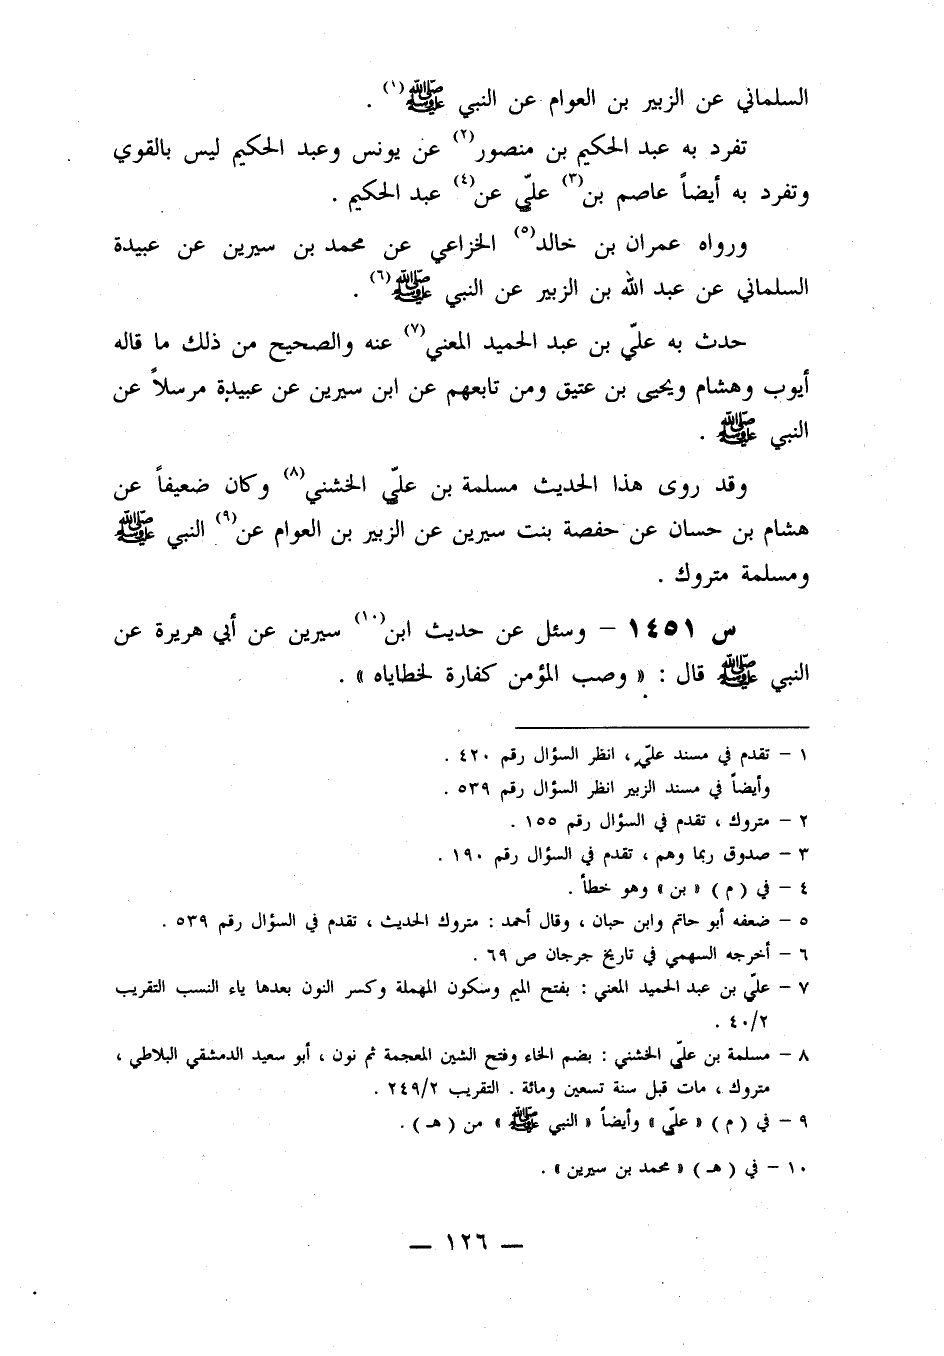 السلماني عن الزبير بن العوام عن النبي ﷺ(١) .
تفرد به عبد الحكيم بن منصور(٢) عن يونس وعبد الحكيم ليس بالقوي
وتفرد به أيضاً عاصم بن(٣) عليّ عن(٤) عبد الحكيم .
ورواه عمران بن خالد(٥) الخزاعي عن محمد بن سيرين عن عبيدة
السلماني عن عبد الله بن الزبير عن النبي ﷺ(٦) .
حدث به عليّ بن عبد الحميد المعني(٧) عنه والصحيح من ذلك ما قاله
أيوب وهشام ويحيى بن عتيق ومن تابعهم عن ابن سيرين عن عبيدة مرسلاً عن
النبي ﷺ .
وقد روى هذا الحديث مسلمة بن عليّ الخشني(٨) وكان ضعيفاً عن
هشام بن حسان عن حفصة بنت سيرين عن الزبير بن العوام عن(٩) النبي ﷺ
ومسلمة متروك .
س ١٤٥١ – وسئل عن حديث ابن(١٠) سيرين عن أبي هريرة عن
النبي ﷺ قال : « وصب المؤمن كفارة لخطاياه » .
١ – تقدم في مسند عليّ ، انظر السؤال رقم ٤٢٠ .
وأيضاً في مسند الزبير انظر السؤال رقم ٥٣٩ .
٢ – متروك ، تقدم في السؤال رقم ١٥٥ .
٣ – صدوق ربما وهم ، تقدم في السؤال رقم ١٩٠ .
٤ – في ( م ) « بن » وهو خطأ .
٥ – ضعفه أبو حاتم وابن حبان ، وقال أحمد : متروك الحديث ، تقدم في السؤال رقم ٥٣٩ .
٦ – أخرجه السهمي في تاريخ جرجان ص ٦٩ .
٧ – عليّ بن عبد الحميد المعني : بفتح الميم وسكون المهملة وكسر النون بعدها ياء النسب التقريب
٤٠/٢ .
٨ – مسلمة بن عليّ الخشني : بضم الخاء وفتح الشين المعجمة ثم نون ، أبو سعيد الدمشقي البلاطي ،
متروك ، مات قبل سنة تسعين ومائة . التقريب ٢٤٩/٢ .
٩ – في ( م ) « عليّ » وأيضاً « النبي ﷺ » من ( هـ ) .
١٠ – في ( هـ ) « محمد بن سيرين » .
— ١٢٦ —